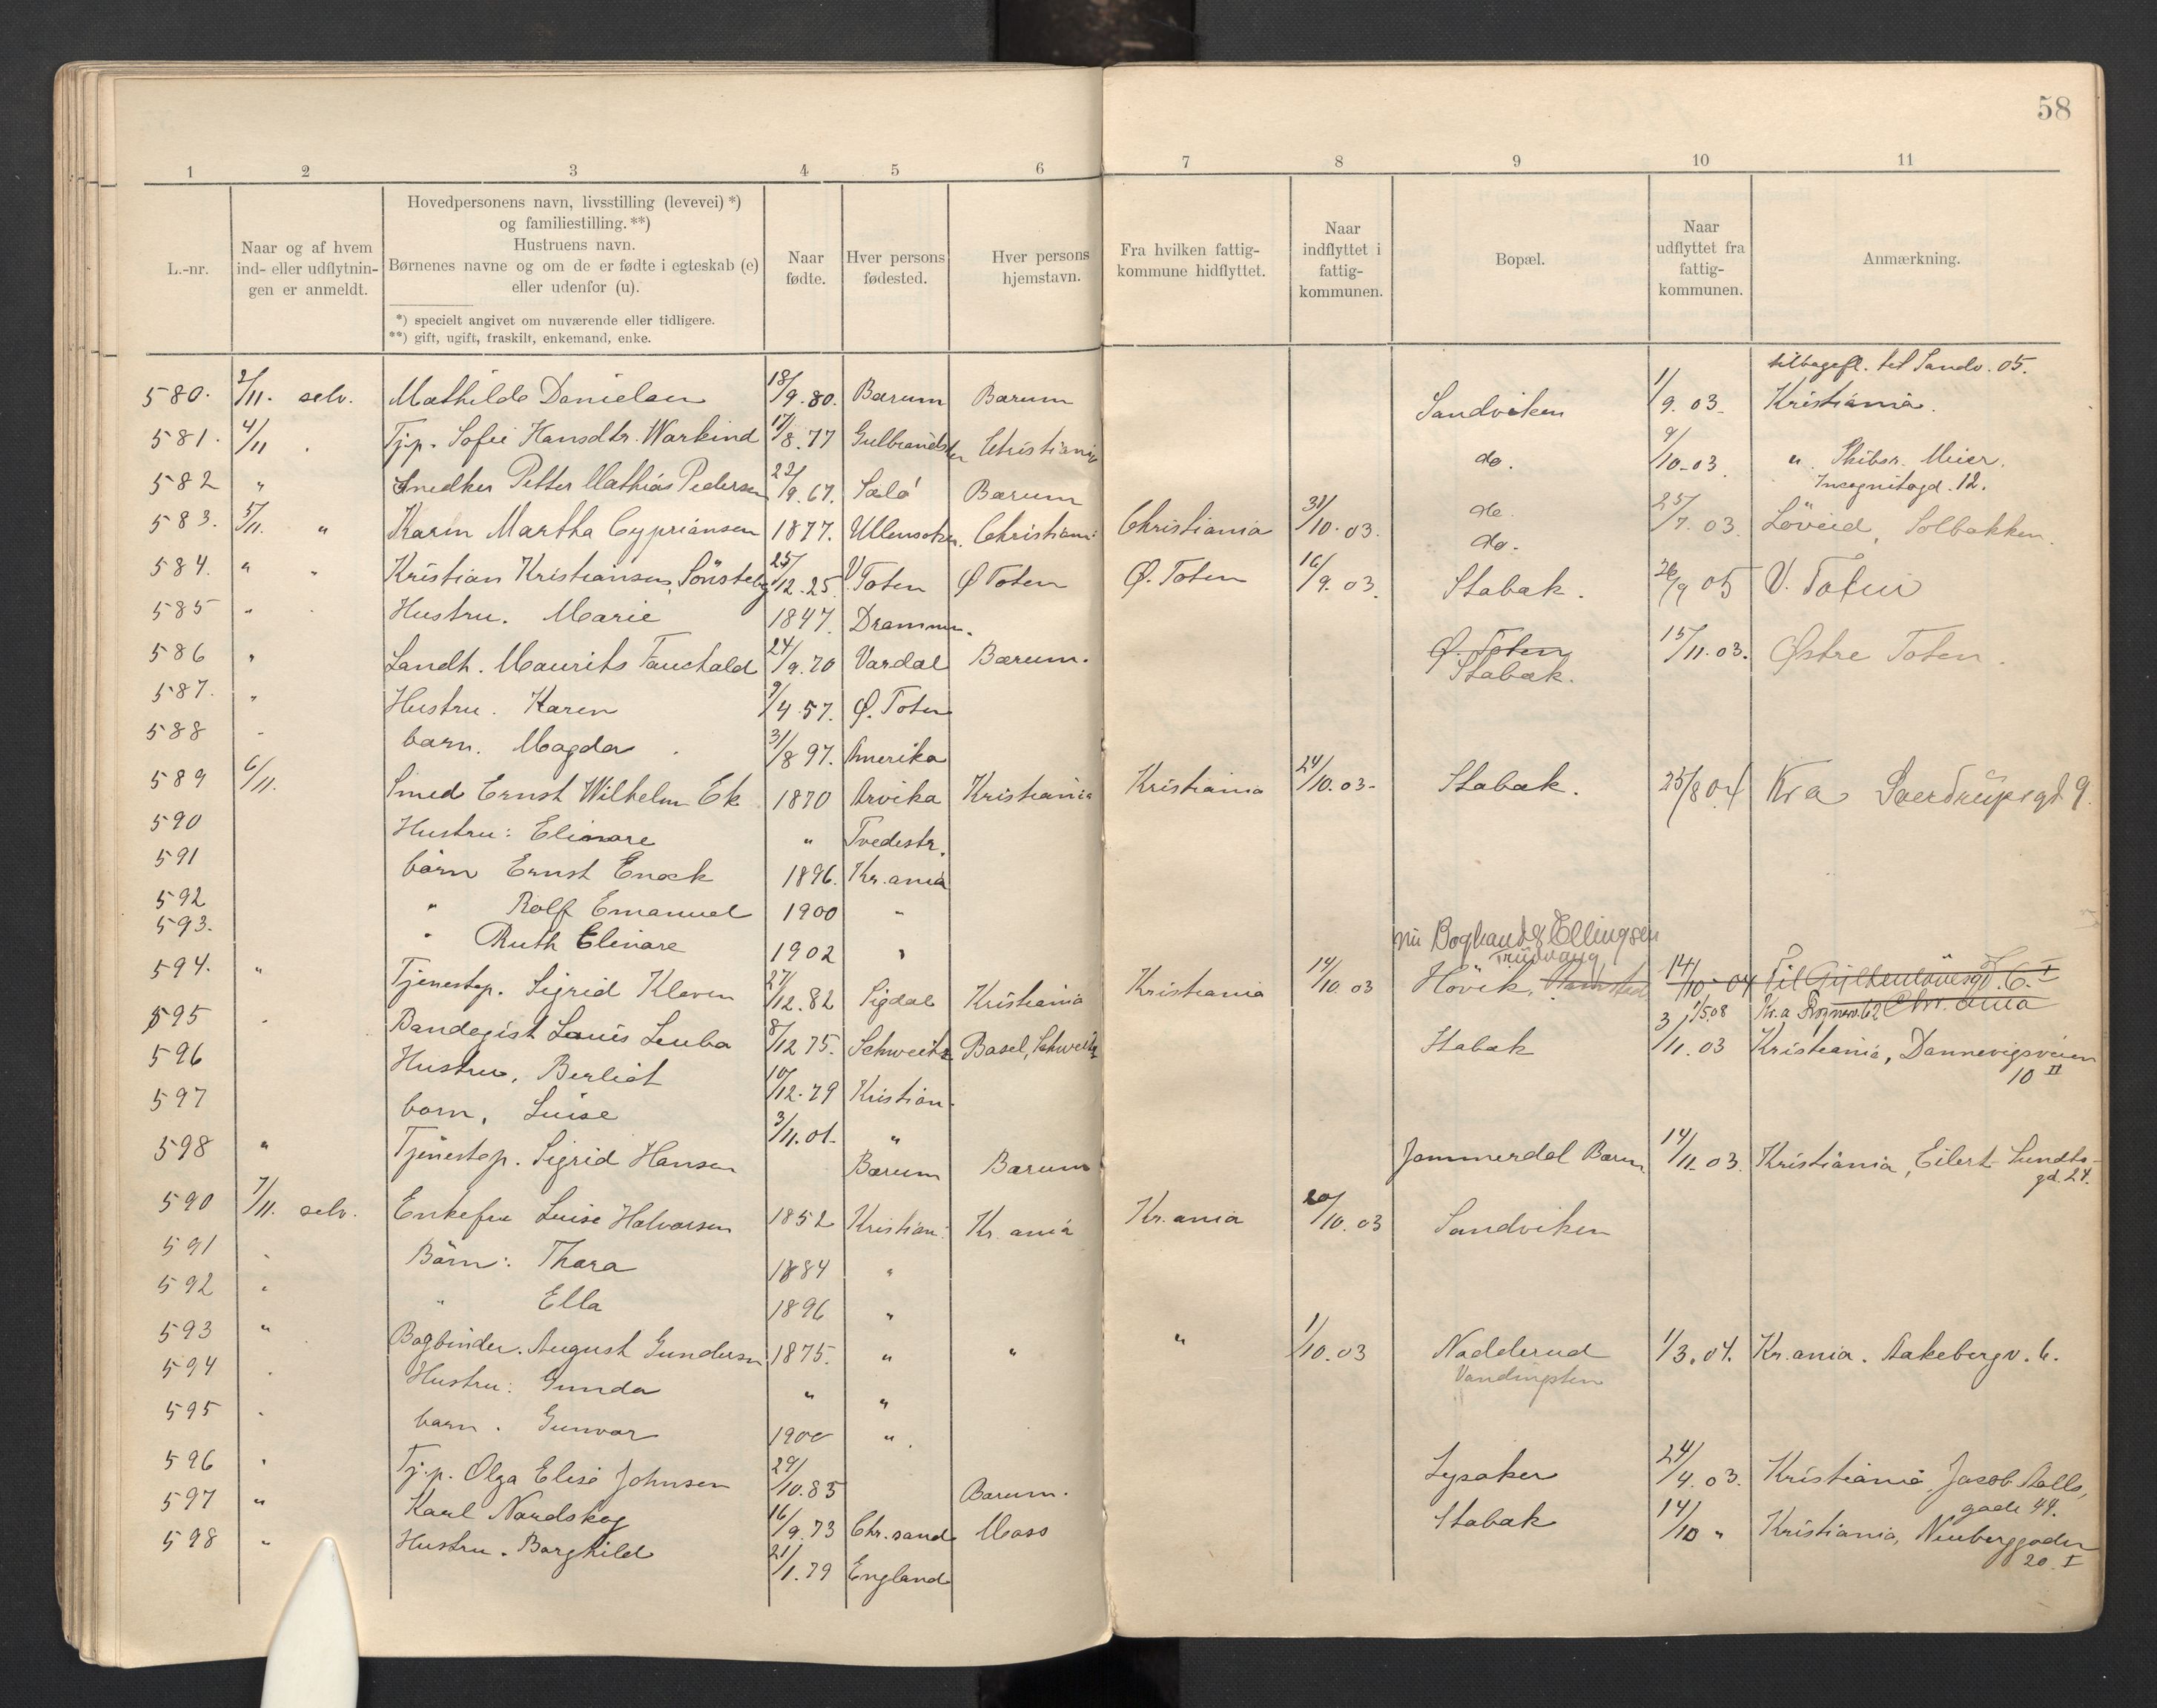 58
1 2 3 4 5 6 7 8 9 10 11
L.-nr.
Naar og af hvem
ind- eller udflytnin-
gen er anmeldt.
Hovedpersonens navn, livsstilling (levevei) *)
og familiestilling. **)
Hustruens navn.
Børnenes navne og om de er fødte i egteskab (e)
eller udenfor (u).
*) specielt angivet om nuværende eller tidligere.
**) gift, ugift, fraskilt, enkemand, enke.
Naar
fødte.
Hver persons
fødested.
Hver persons
hjemstavn.
Fra hvilken fattig-
kommune hidflyttet.
Naar
indflyttet i
fattig-
kommunen.
Bopæl.
Naar
udflyttet fra
fattig-
kommunen.
Anmærkning.
tilbagefl. til Sandv. 05.
580. 2/11. selv. Mathilde Danielsen 18/9.80. Bærum Bærum Sandviken 1/9.03. Kristiania.
581. 4/11 Tjp. Sofie Hansdtr. Warkind 17/8.77 Gulbrandsdn Christiania do. 9/10-03 " Thibsr. Meier.
Incognitogd. 12.
582 " Snedker Petter Mathias Pedersen 22/9.67. Bærum do. 25/7.03. Löveid, Solbakken.
583. 5/11. " Karen Martha Cypriansen 1877. Ullensaker. Christiani: Christiania 31/10.03. do.
584. " " Kristian Kristiansen, Sönsteby 25/12.25. V. Toten Ø Toten Ø. Toten 16/9.03. Stabæk. 26/9 05 V. Toten
585 " Hustru. Marie 1847. Drammen.
586 " Landh. Maurits Fauchald 24/9.70 Vardal Bærum. Ø. Toten 15/11.03. Østre Toten.
Stabæk.
587. " Hustru. Karen 9/4.57. Ø. Toten
588 " barn. Magda 31/8 97. Amerika
589 6/11. Smed Ernst Wilhelm Ek 1870 Arvika Kristiania Kristiania 24/10.03- Stabæk. 25/8 04 Kra Sverdrupsgd 9.
590 Hustru: Elinore " Tvedestr.
591 börn Ernst Enock 1896. Kr.ania
592 " Rolf Emanuel 1900 "
593. " Ruth Elinore 1902 "
nu Boghandl Ellingsen
Trudvang
594. " Tjenestep. Sigrid Kleven 27/12.82 Sigdal Kristiania Kristiania 14/10.03 Hövik, 14/10-04 Til Gyldenlövesgd. 6. I
Chr.ania
1/5 08 Kr.a
595 " Bandagist Louis Leuba 8/12 75. Schweitz Basel, Schweitz Stabæk 3/11.03 Kristiania, Dannevigsveien
10 II
596 Hustru, Berliot 10/12.79 Kristian.
597 barn, Luise 3/11.01. "
598 " Tjenestep. Sigrid Hansen Bærum Bærum Jammerdal Bærum 14/11.03. Kristiania, Eilert Sundts-
gd. 24.
590 7/11. selv. Enkefru Luise Halvorsen 1852 Kristian. Kr.ania Kr.ania 20/10.03 Sandviken
591 " Börn: Thora 1884 "
592 " " Ella 1896 "
593 " Bogbinder. August Gundersen 1875. " " " 1/10.03 Nadderud 1/3.04. Kr.ania. Aakebergv. 6.
594 " Hustru: Gunda " "
595 " barn. Gunvor 1900 "
596 " Tj.p. Olga Elise Johnsen 29/10.85 Bærum. Lysaker 24/4.03. Kristiania Jacob Aalls,
gade 44.
597 " Karl Nordskog 16/9.73 Chr.sand Moss Stabæk 14/10 " Kristiania, Neuberggaden
20. I
598 " Hustru. Borghild 21/1.79 England